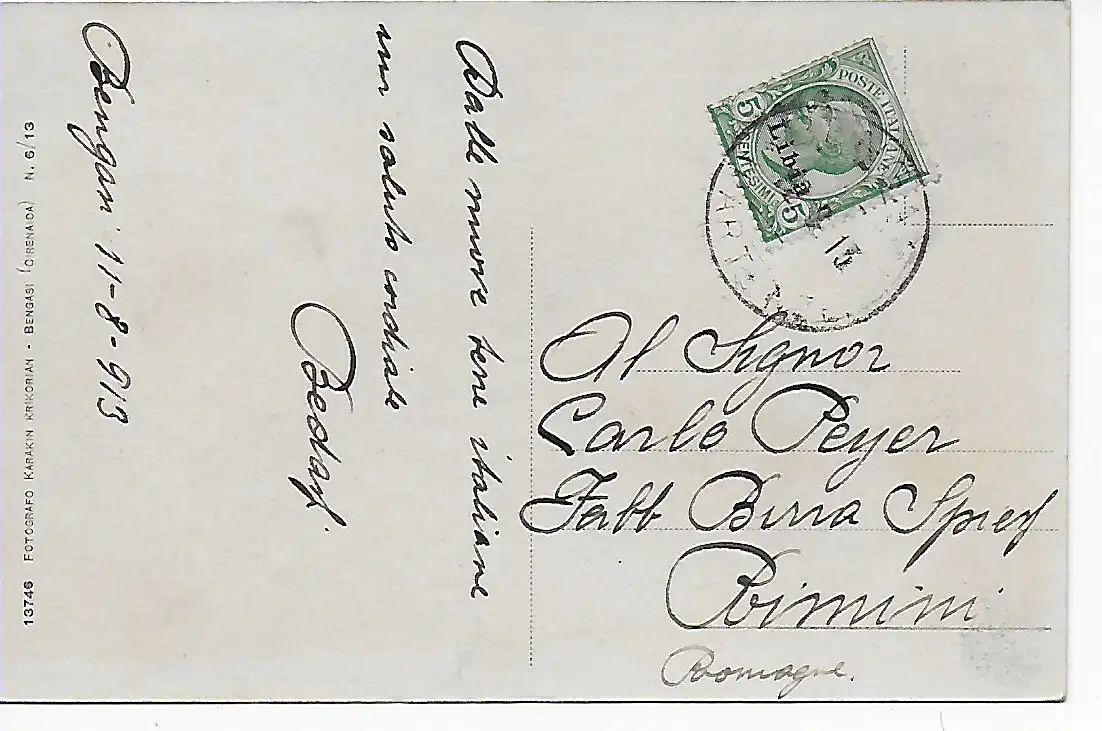 Bengasi 11-8-913
Dalle nuove terre italiane
un saluto cordiale
13746 FOTOGRAFO KARAKIN KRIKORIAN - BENGASI (CIRENAICA) N. 6/13
POSTE ITALIANE
5 CENTESIMI 5
Libia
13
Al Signor
Carlo Peyer
Fabb Birra Spiess
Rimini
Romagne.